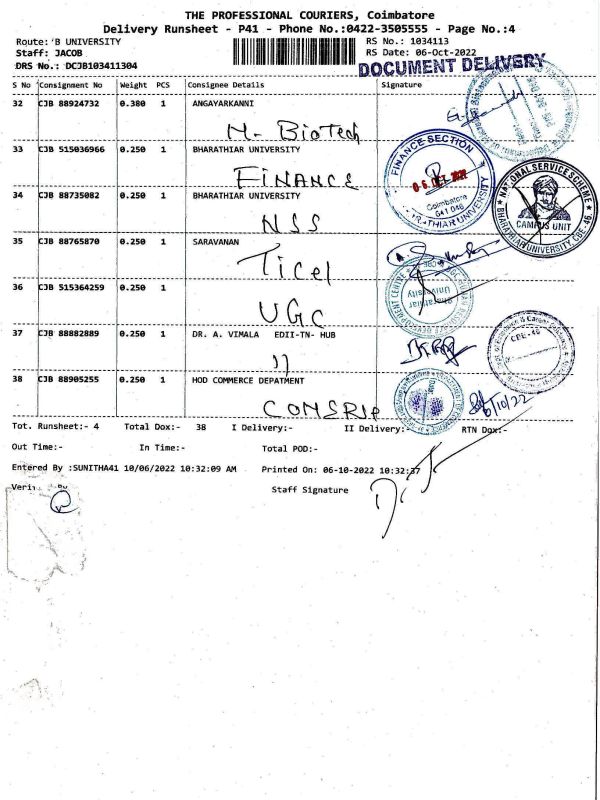 THE PROFESSIONAL COURIERS, Coimbatore
Delivery Runsheet - P41 - Phone No.:0422-3505555 - Page No.:4
Route: 'B UNIVERSITY RS No.: 1034113
Staff: JACOB RS Date: 06-Oct-2022
DRS No.: DCJB103411304 DOCUMENT DELIVERY
S No Consignment No Weight PCS Consignee Details Signature
32 CJB 88924732 0.380 1 ANGAYARKANNI
M- BioTech
33 CJB 515036966 0.250 1 BHARATHIAR UNIVERSITY
FINANCE
FINANCE SECTION
Coimbatore
641 046
34 CJB 88735082 0.250 1 BHARATHIAR UNIVERSITY
NSS
NATIONAL SERVICE SCHEME
CAMPUS UNIT
BHARATHIAR UNIVERSITY, CBE-46.
35 CJB 88765870 0.250 1 SARAVANAN
Ticel
36 CJB 515364259 0.250 1
UGC
Bharathiar
University
37 CJB 88882889 0.250 1 DR. A. VIMALA EDII-TN- HUB
11
CPE-46
38 CJB 88905255 0.250 1 HOD COMMERCE DEPATMENT
6/10/22
Tot. Runsheet:- 4 Total Dox:- 38 I Delivery:- II Delivery:- RTN Dox:-
Out Time:- In Time:- Total POD:-
Entered By :SUNITHA41 10/06/2022 10:32:09 AM Printed On: 06-10-2022 10:32:37
Staff Signature